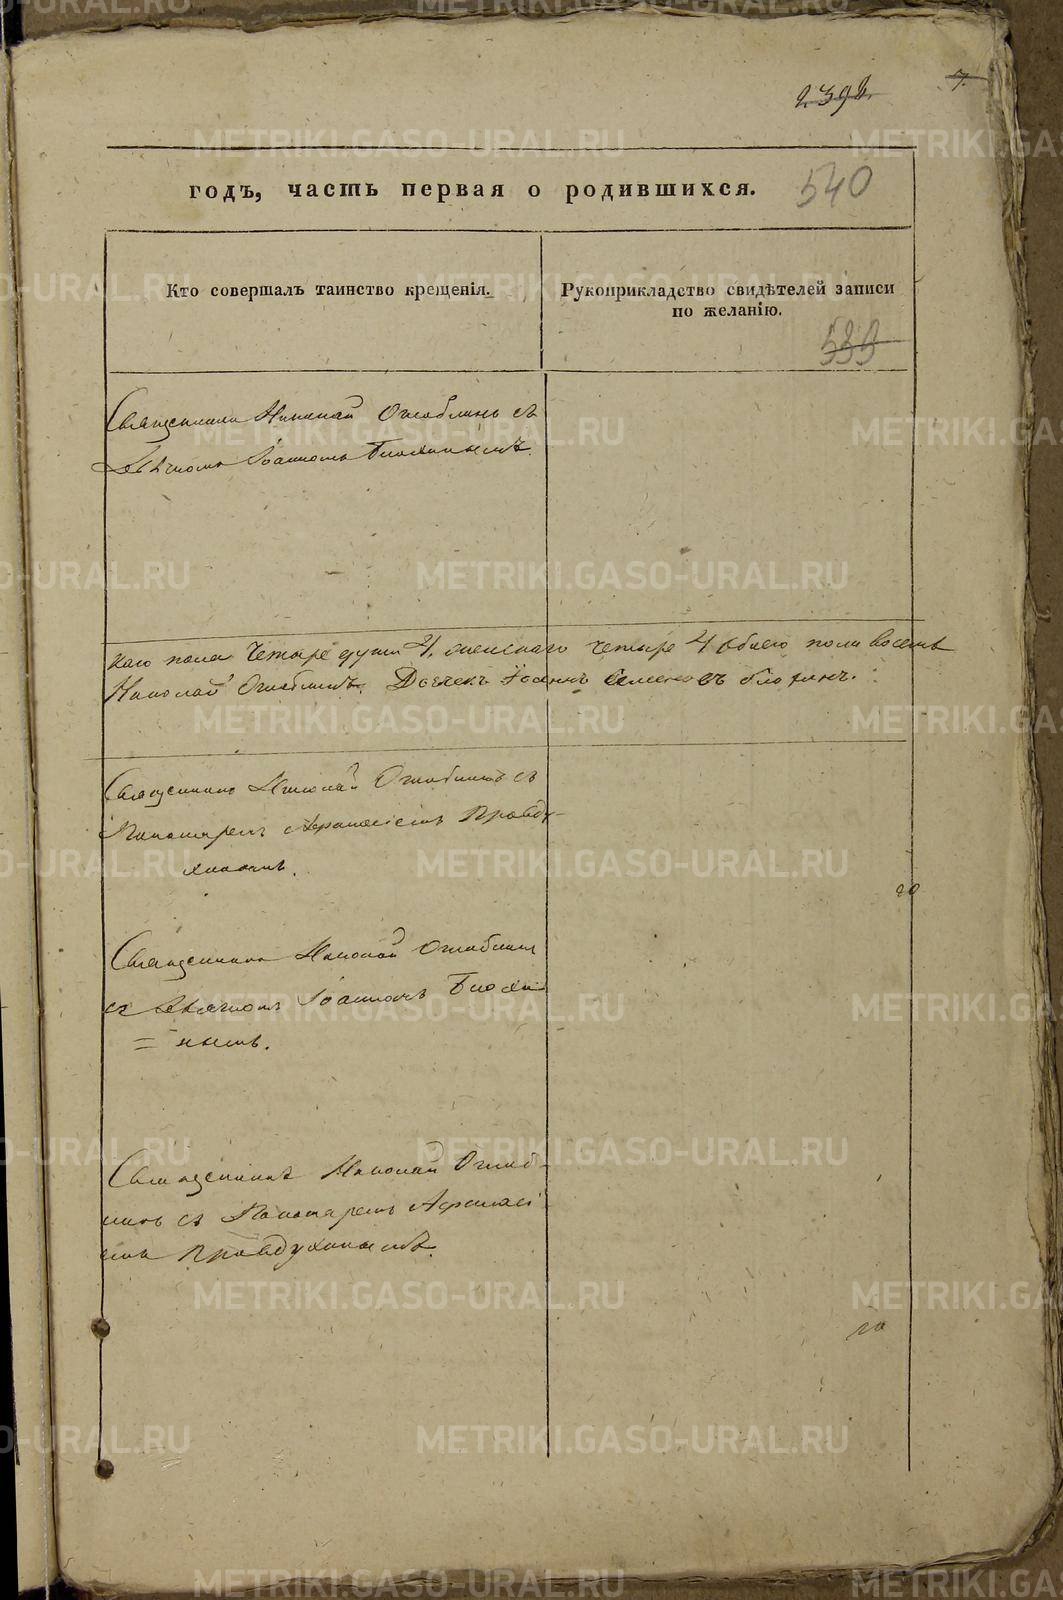 2392.
7.
годъ, часть первая о родившихся.
540
Кто совершалъ таинство крещенія.
Рукоприкладство свидѣтелей записи
по желанію.
539
Священникъ Николай Оглоблинъ съ
Дьячкомъ Іоанномъ Блохинымъ.
каго пола четыре души 4, женскаго четыре 4 обоего пола восемь
Николай Оглоблинъ. Дьячекъ Іоаннъ Блохинъ.
Священникъ Николай Оглоблинъ съ
Пономаремъ Афанасіемъ Правду-
хинымъ.
20
Священникъ Николай Оглоблинъ
съ Дьячкомъ Іоанномъ Блохи-
= нымъ.
Священникъ Николай Оглоб-
линъ съ Пономаремъ Афанасі-
емъ Правдухинымъ.
METRIKI.GASO-URAL.RU